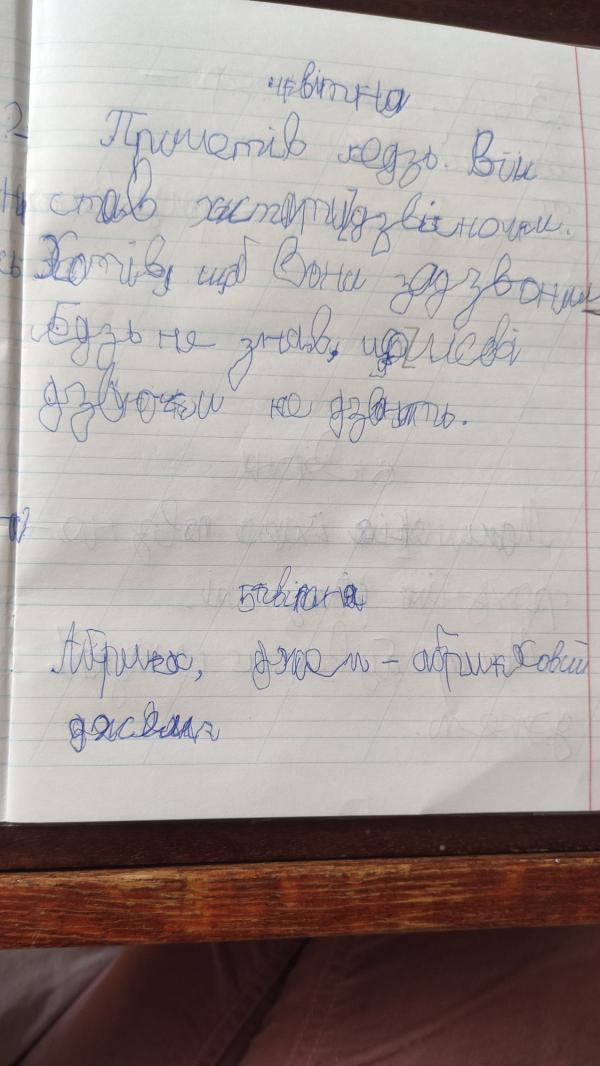 4 квітня
Прилетів ґедзь. Він
став хитати дзвіночки.
Хотів, щоб вони задзвонили
Ґедзь не знав, що лісові
дзвіночки не дзвонять.
5 квітня
Абрикос, джем - абрикосовий
джем